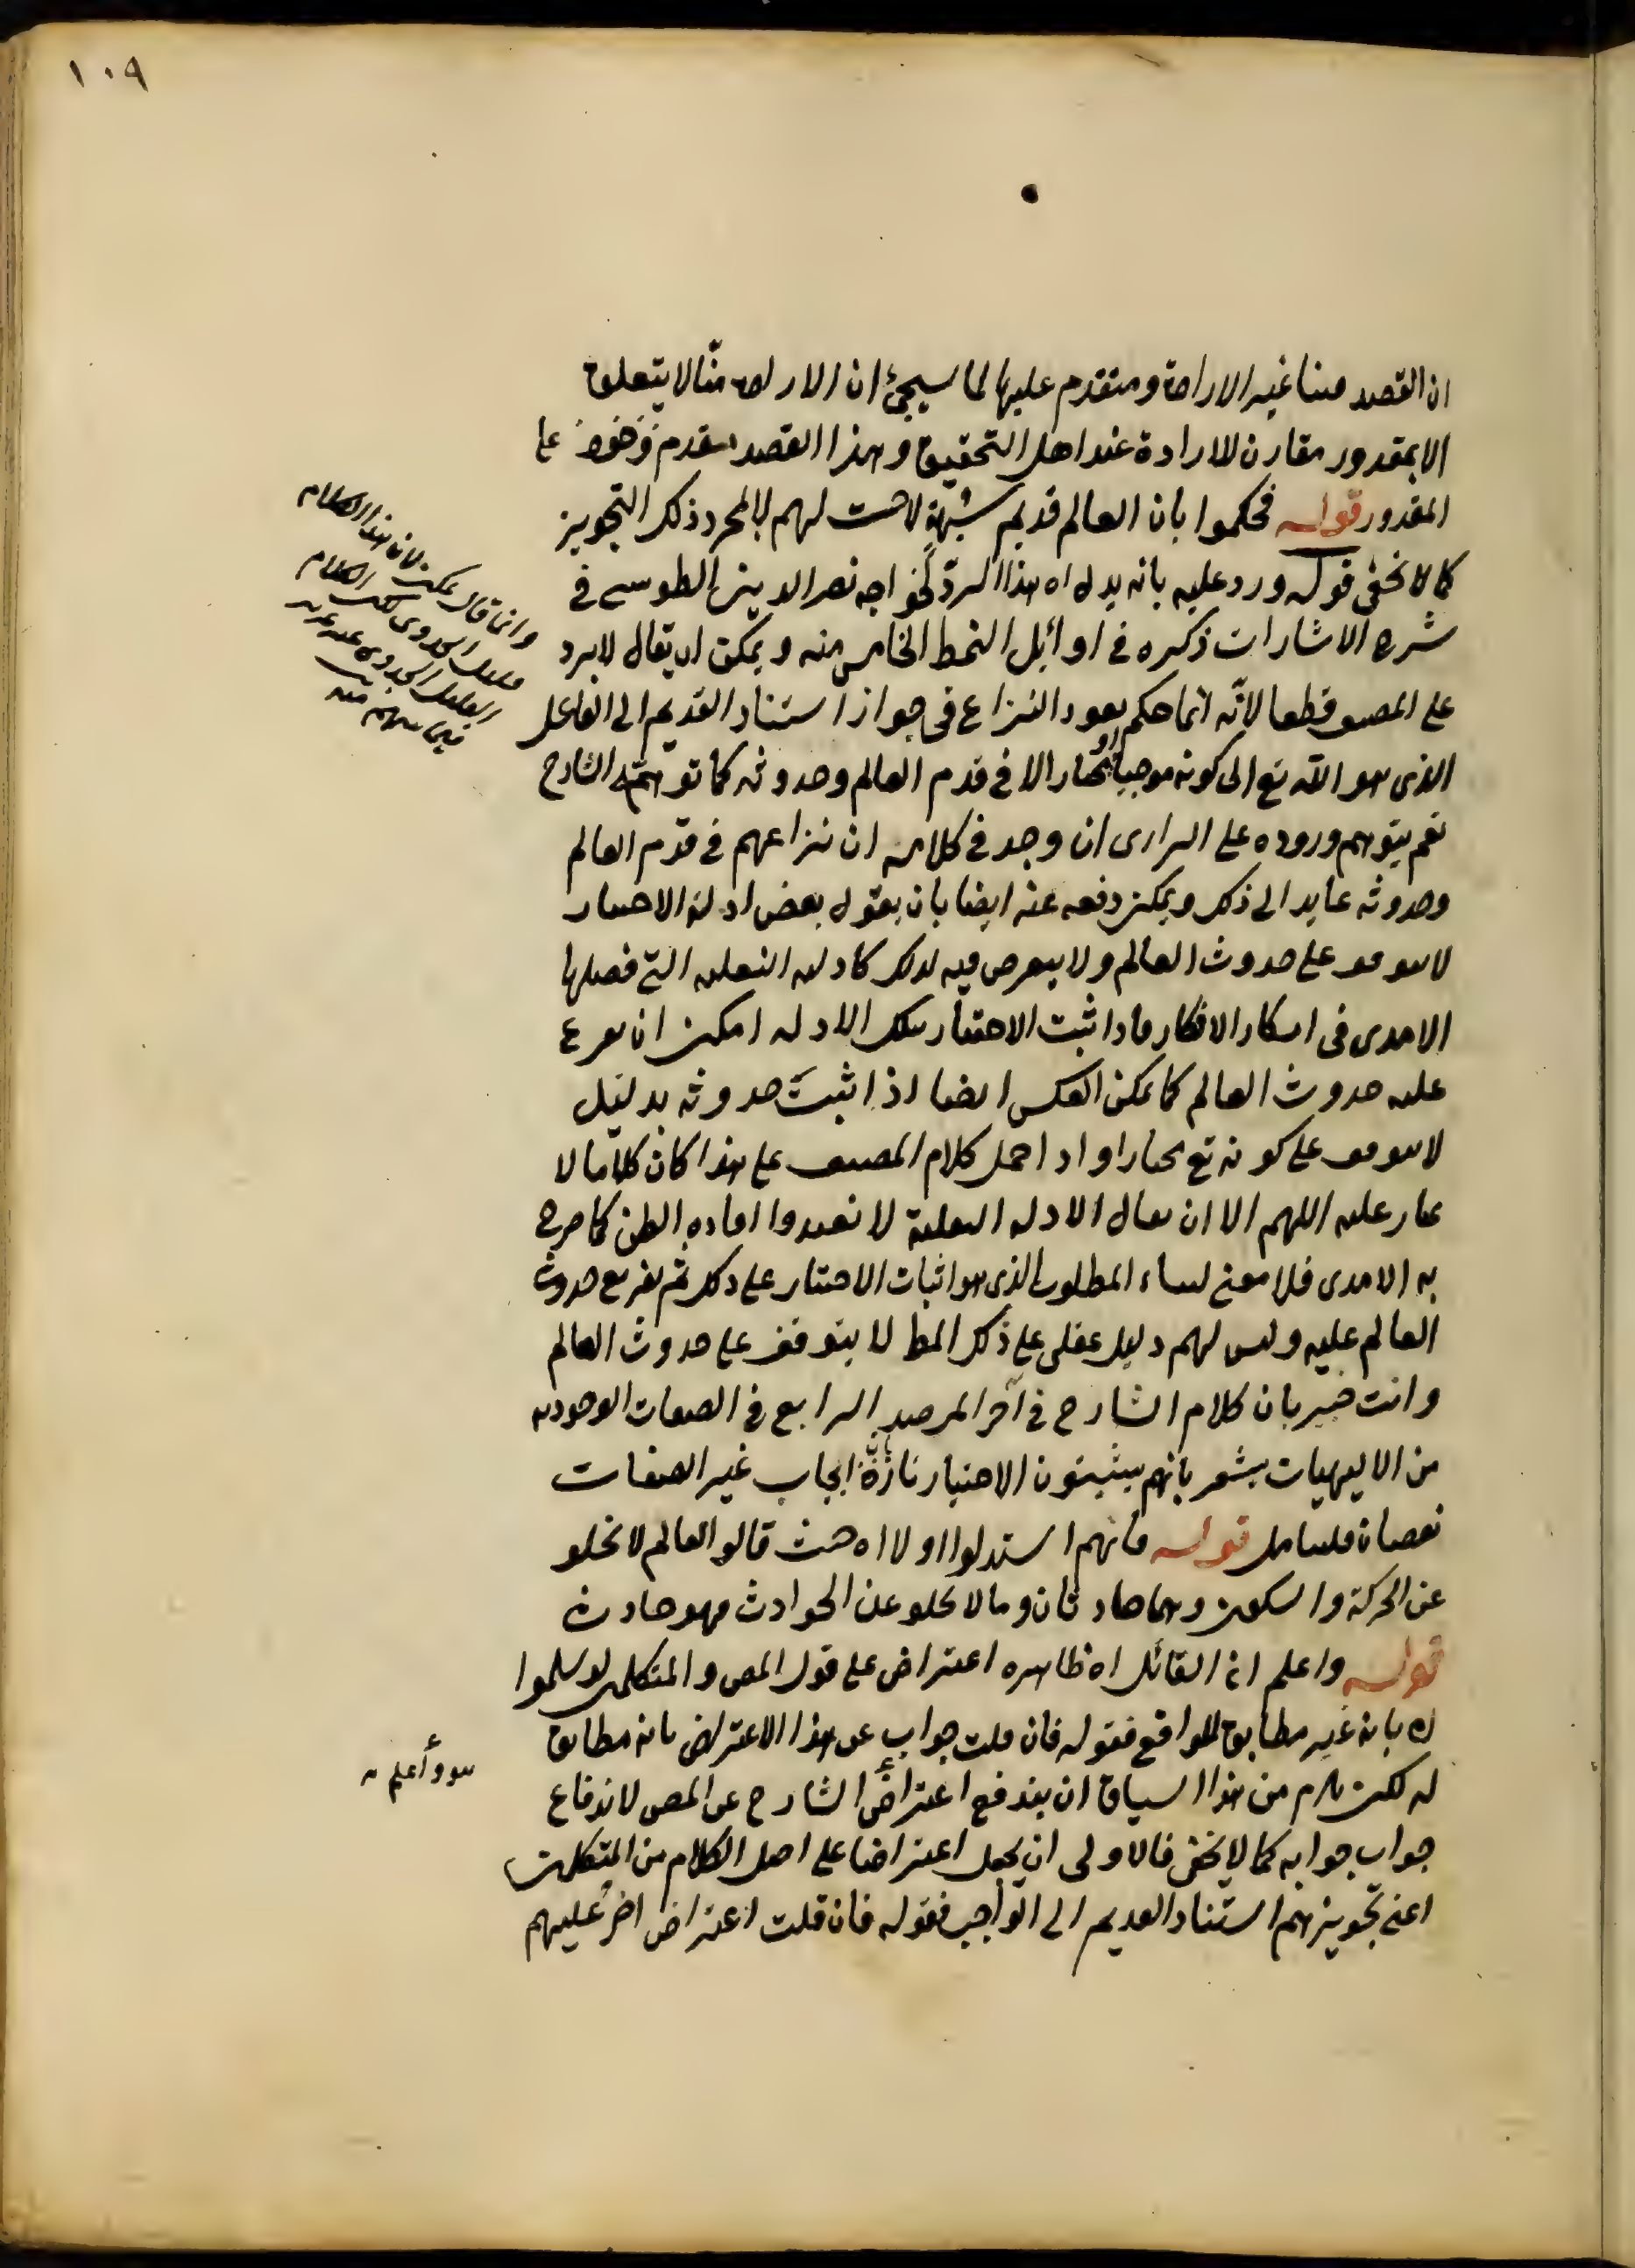 ١٠٩
ان القصد منا غير الارادة ومتقدم عليها لما سيجئ ان الارادة منّا لا يتعلق
الا بمقدور مقارن للارادة عند اهل التحقيق وهذا القصد متقدم على
المقدور قوله فحكموا بان العالم قديم لشبهة لاحت لهم لا لمجرد ذلك التجويز
كما لا يخفى قوله ورد عليه بانه بدل اه هذا الردّ لخواجه نصر الدين الطوسى فى
شرح الاشارات ذكره فى اوائل النمط الخامس منه ويمكن ان يقال لا يرد
على المصنف قطعا لانّه انما حكم بعود النزاع فى جواز استناد القديم الى الفاعل
الذى هو الله تع الى كونه موجبا او مختارا لا فى قدم العالم وحدوثه كما توهمّه الشارح
نعم يتوهم وروده على الرازى ان وجد فى كلامه ان نزاعهم فى قدم العالم
وحدوثه عايد الى ذلك ويمكن دفعه عنه ايضا بان يقول بعض ادلة الاختيار
لا يتوقف على حدوث العالم ولا يتعرض فيه لذلك كادلته النقلية التى فصلها
الامدى فى ابكار الافكار فاذا ثبت الاختيار بتلك الادلة امكن ان يفرع
عليه حدوث العالم كما يمكن العكس ايضا اذا ثبت حدوثه بدليل
لا يتوقف على كونه تع مختارا واذا حمل كلام المصنف على هذا كان كلاما لا
غبار عليه اللهم الا ان يقال الادلة النقلية لا تفيد الا افادة الظن كما صرح
به الامدى فلا معنى لبناء المطلوب الذى هو اثبات الاختيار على ذلك ثم تفريع حدوث
العالم عليه وليس لهم دليل عقلى على ذلك المط لا يتوقف على حدوث العالم
وانت خبير بان كلام الشارح فى آخر المرصد الرابع فى الصفات الوجودية
من الالهيات يشعر بانهم يثبتون الاختيار تارة بان ايجاب غير الصفات
نقصان فليتامل قوله فانهم استدلوا اولا اه حيث قالوا العالم لا يخلو
عن الحركة والسكون وهما حادثان وما لا يخلو عن الحوادث فهو حادث
قوله واعلم ان القائل اه ظاهره اعتراض على قول المص والمتكلمون لو سلموا
اه بانه غير مطابق للواقع فقوله فان قلت جواب عن هذا الاعتراض بانه مطابق
له لكن يلزم من هذا السياق ان يندفع اعتراض الشارح عن المص لاندفاع
جواب جوابه كما لا يخفى فالاولى ان يجعل اعتراضا على اصل الكلام من المتكلمين
اعنى تجويزهم استناد القديم الى الواجب فقوله فان قلت اعتراض اخر عليهم
وانما قال يمكن لان هذا الكلام
الكلام
منه
واعلم